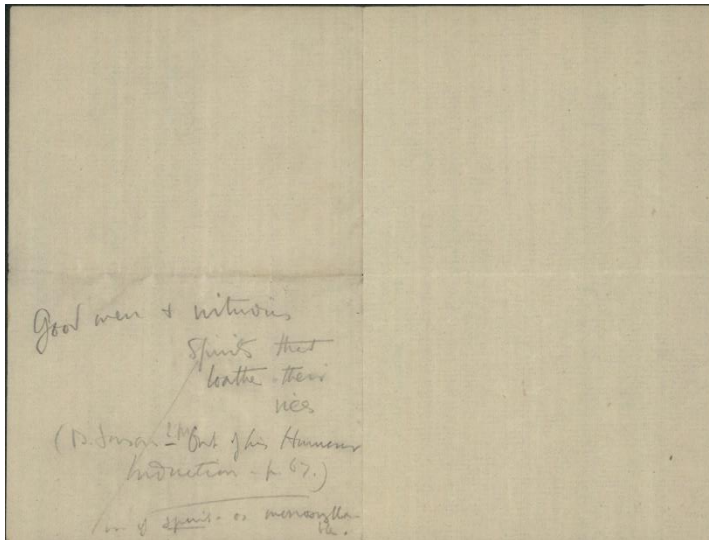 Good men & virtuous
Spirits that
loathe their
vices
(B. Jonson Out of his Humour
Induction - p. 67.)
of spirit - as monosylla-
ble.